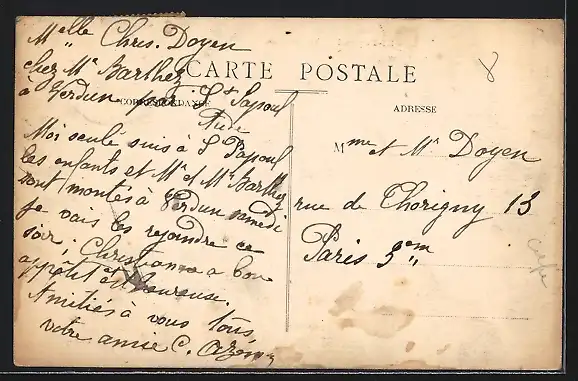 Melle Chris. Doyen
chez Mr Barthez
à Verdun par St Papoul
Aude
CARTE POSTALE
CORRESPONDANCE
ADRESSE
Moi seule suis à St Papoul
les enfants et Mr et Me Barthez
sont montés à Verdun samedi
je vais les rejoindre ce
soir; Christiane a bon
appétit et heureuse.
Amitiés à vous tous,
votre amie C.
Mme et Mr Doyen
rue de Thorigny 13
Paris 3em
8